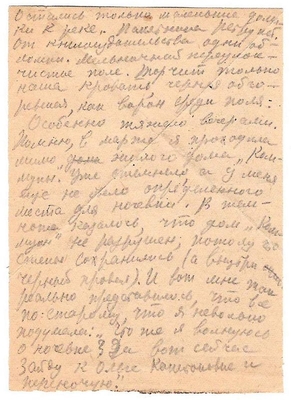 Остались только маленькие доми
ки к реке. Памятника
от книгоиздательства одни об-
ломки.
чистое поле. Торчит только
наша кровать, черная обго-
релая, как ворон среди поля.
Особенно тяжело вечерами.
Помню, в марте я проходила
мимо жилого дома „Ком-
муны". Уже стемнело а у меня
еще не было определенного
места для ночевки. В тем-
ноте казалось, что дом „Ком-
муны" не разрушен, потому что
стены сохранились (а внутри
черный провал). И вот мне так
реально представилось, что все
по-старому, что я невольно
подумала: „Что же я волнуюсь
о ночевке? Да вот сейчас
зайду к Ольге и
переночую."